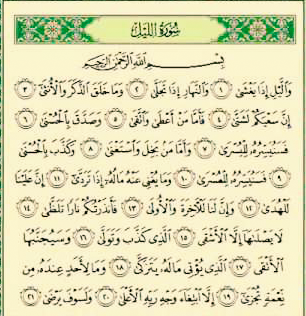 سُورَةُ اللَّيْلِ
بِسْمِ اللَّهِ الرَّحْمَٰنِ الرَّحِيمِ
وَاللَّيْلِ إِذَا يَغْشَىٰ ١ وَالنَّهَارِ إِذَا تَجَلَّىٰ ٢ وَمَا خَلَقَ الذَّكَرَ وَالْأُنثَىٰ ٣
إِنَّ سَعْيَكُمْ لَشَتَّىٰ ٤ فَأَمَّا مَنْ أَعْطَىٰ وَاتَّقَىٰ ٥ وَصَدَّقَ بِالْحُسْنَىٰ ٦
فَسَنُيَسِّرُهُ لِلْيُسْرَىٰ ٧ وَأَمَّا مَن بَخِلَ وَاسْتَغْنَىٰ ٨ وَكَذَّبَ بِالْحُسْنَىٰ
٩ فَسَنُيَسِّرُهُ لِلْعُسْرَىٰ ١٠ وَمَا يُغْنِي عَنْهُ مَالُهُ إِذَا تَرَدَّىٰ ١١ إِنَّ عَلَيْنَا
لَلْهُدَىٰ ١٢ وَإِنَّ لَنَا لَلْآخِرَةَ وَالْأُولَىٰ ١٣ فَأَنذَرْتُكُمْ نَارًا تَلَظَّىٰ ١٤
لَا يَصْلَاهَا إِلَّا الْأَشْقَى ١٥ الَّذِي كَذَّبَ وَتَوَلَّىٰ ١٦ وَسَيُجَنَّبُهَا
الْأَتْقَى ١٧ الَّذِي يُؤْتِي مَالَهُ يَتَزَكَّىٰ ١٨ وَمَا لِأَحَدٍ عِندَهُ مِن
نِّعْمَةٍ تُجْزَىٰ ١٩ إِلَّا ابْتِغَاءَ وَجْهِ رَبِّهِ الْأَعْلَىٰ ٢٠ وَلَسَوْفَ يَرْضَىٰ ٢١